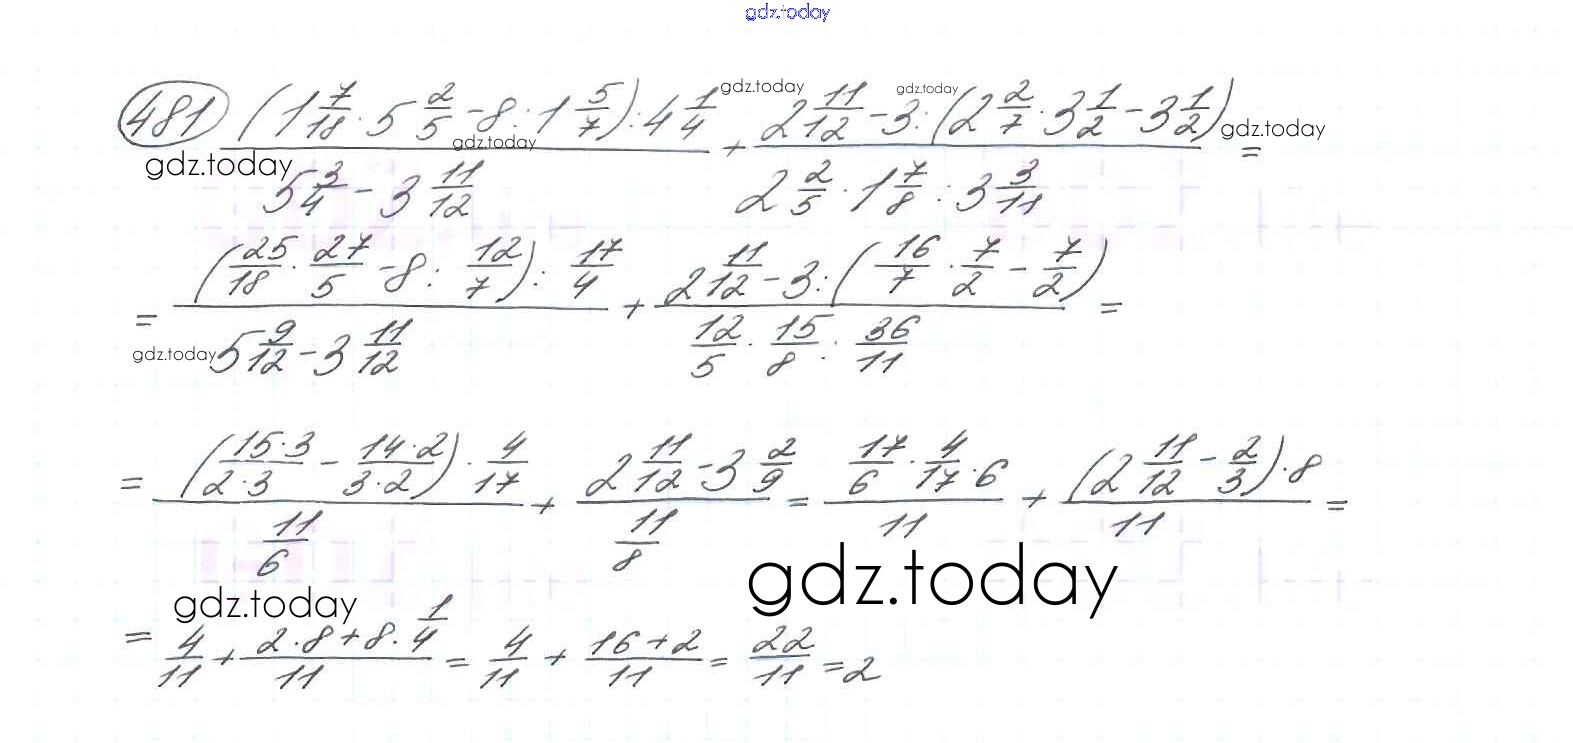 gdz.today
481 ((1 7/18 · 5 2/5 - 8 : 1 5/7) : 4 1/4) / (5 3/4 - 3 11/12) + (2 11/12 - 3 : (2 2/7 · 3 1/2 - 3 1/2)) / (2 2/5 · 1 7/8 : 3 3/11) =
gdz.today gdz.today gdz.today gdz.today gdz.today
= ((25/18 · 27/5 - 8 : 12/7) : 17/4) / (5 9/12 - 3 11/12) + (2 11/12 - 3 : (16/7 · 7/2 - 7/2)) / (12/5 · 15/8 : 36/11) =
gdz.today
= ((15·3/2·3 - 14·2/3·2) · 4/17) / (11/6) + (2 11/12 - 3 2/9) / (11/8) = (17/6 · 4/17 · 6) / 11 + ((2 11/12 - 2/3) · 8) / 11 =
gdz.today gdz.today
= 4/11 + (2·8 + 8· 1/4) / 11 = 4/11 + (16+2)/11 = 22/11 = 2